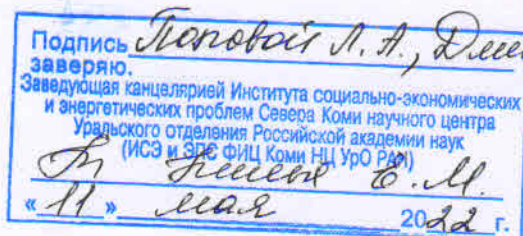 Подпись Поповой Л. А.,
заверяю.
Заведующая канцелярией Института социально-экономических
и энергетических проблем Севера Коми научного центра
Уральского отделения Российской академии наук
(ИСЭ и ЭПС ФИЦ Коми НЦ УрО РАН)
Е. М.
«11» мая 2022 г.